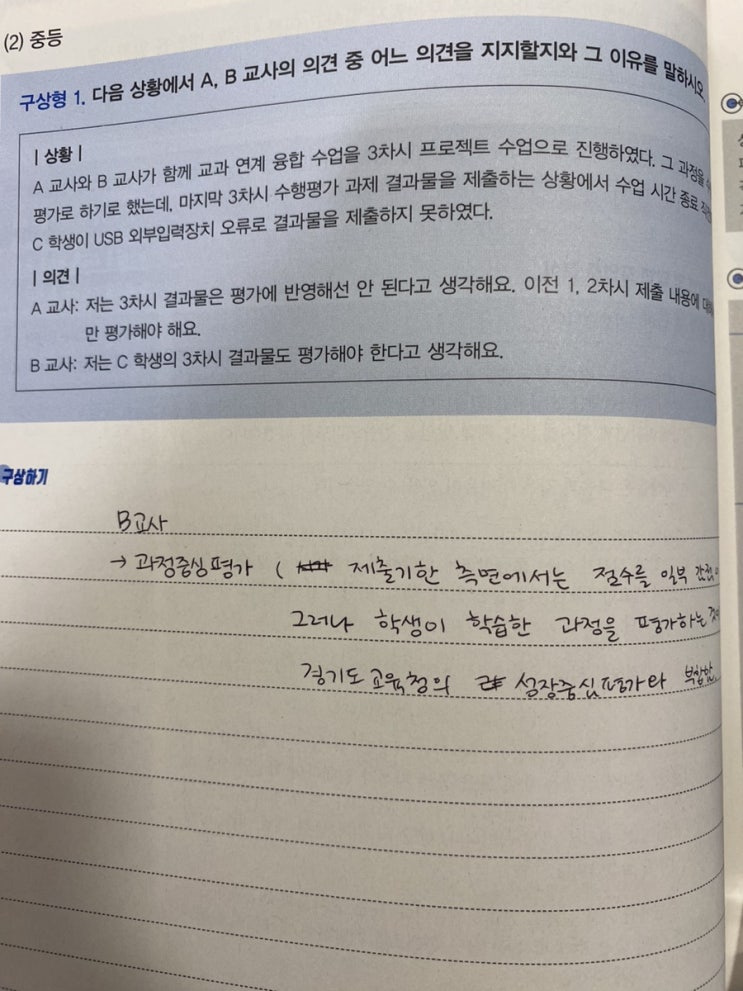 (2) 중등
구상형 1. 다음 상황에서 A, B 교사의 의견 중 어느 의견을 지지할지와 그 이유를 말하시오.
| 상황 |
A 교사와 B 교사가 함께 교과 연계 융합 수업을 3차시 프로젝트 수업으로 진행하였다. 그 과정을
평가로 하기로 했는데, 마지막 3차시 수행평가 과제 결과물을 제출하는 상황에서 수업 시간 종료
C 학생이 USB 외부입력장치 오류로 결과물을 제출하지 못하였다.
| 의견 |
A 교사: 저는 3차시 결과물은 평가에 반영해선 안 된다고 생각해요. 이전 1, 2차시 제출 내용에
만 평가해야 해요.
B 교사: 저는 C 학생의 3차시 결과물도 평가해야 한다고 생각해요.
구상하기
B교사
→ 과정중심평가 ( 제출기한 측면에서는 점수를 일부
그러나 학생이 학습한 과정을 평가하는
경기도교육청의 성장중심평가와